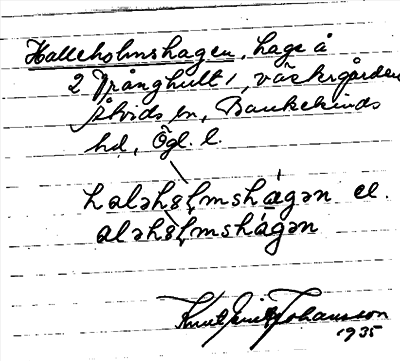 Halleholmshagen, hage å
2 Trånghult 1, västergården
Åtvids sn, Bankekinds
hd, Ögl. l.
haləhəɫmshágən el.
aləhəɫmshágən
Knut Emil Johansson
1935